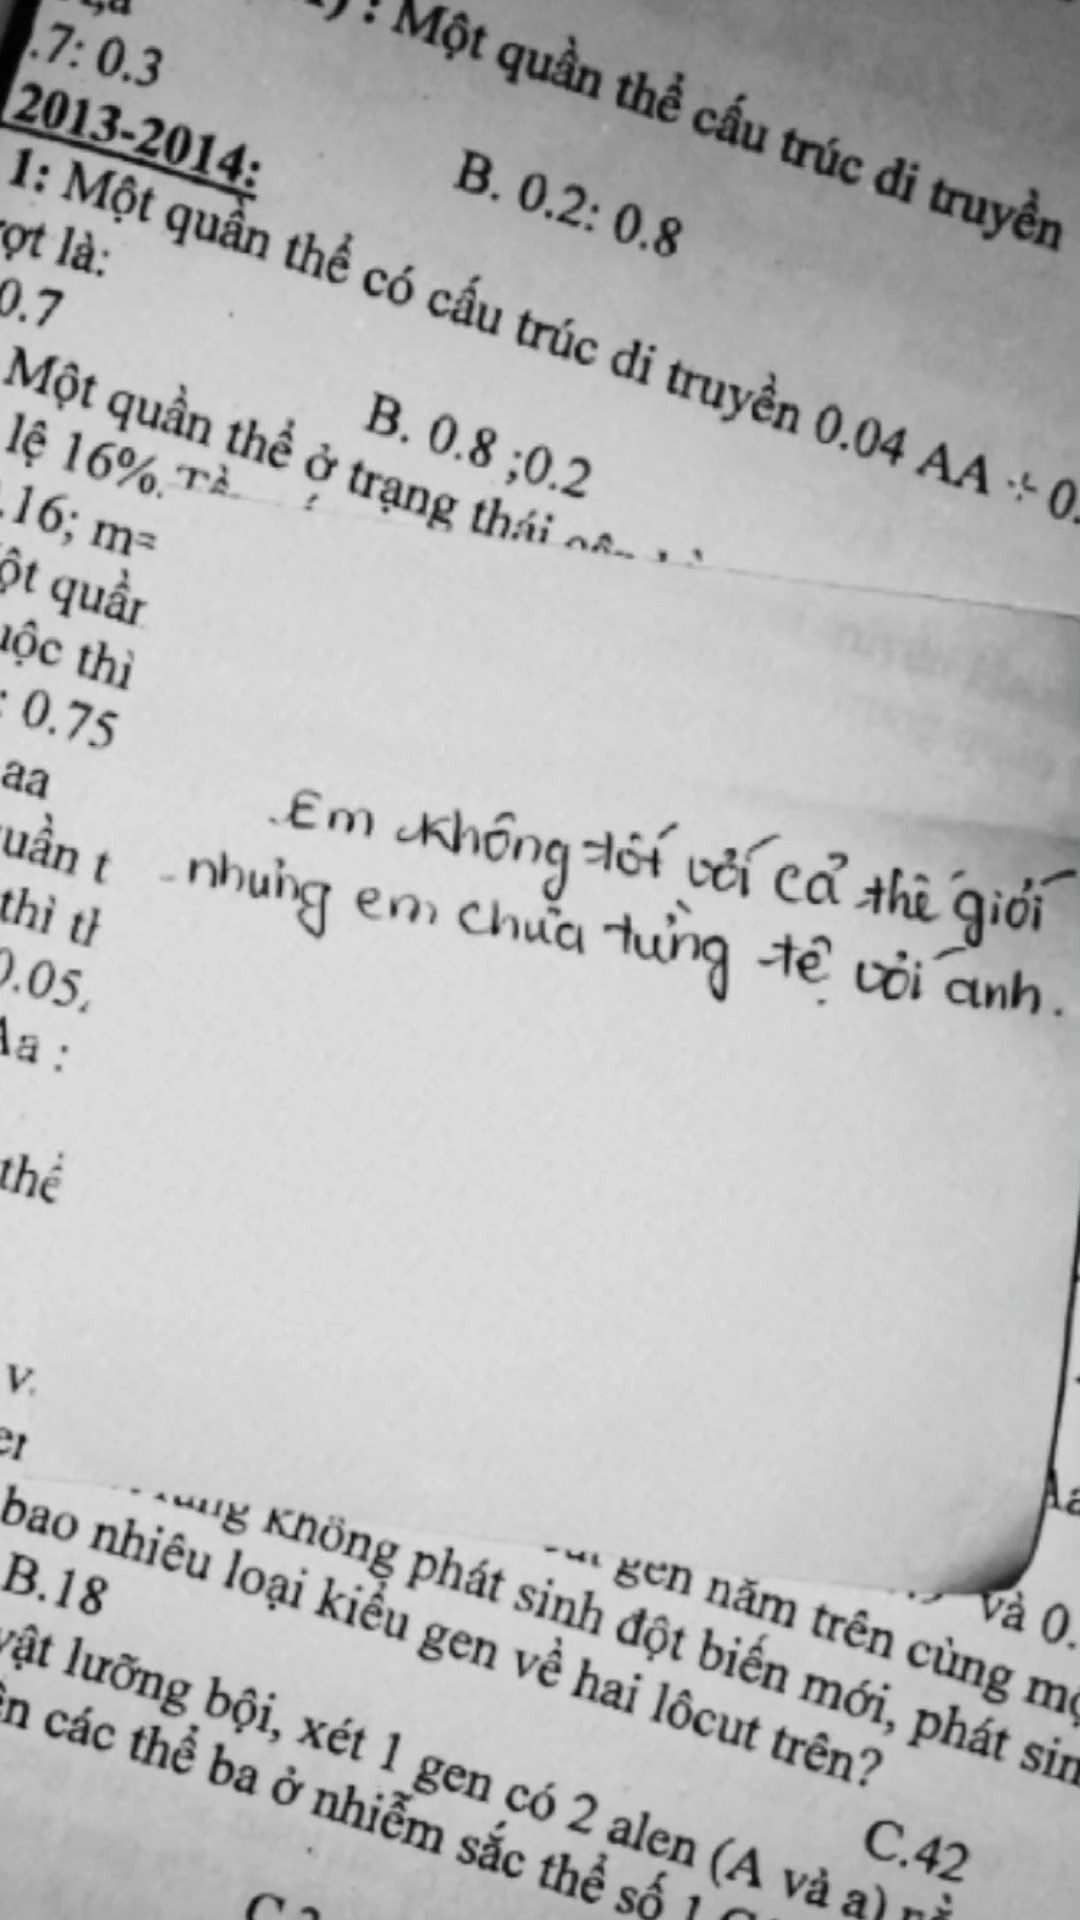 : Một quần thể cấu trúc di truyền
.7: 0.3
B. 0.2: 0.8
2013-2014:
1: Một quần thể có cấu trúc di truyền 0.04 AA + 0.
ợt là:
0.7
B. 0.8 ;0.2
Một quần thể ở trạng thái
lệ 16%.
.16; m=
ột quần
uộc thì
: 0.75
aa
uần t
thì th
0.05.
Aa :
thể
v.
Em không tốt với cả thế giới
nhưng em chưa từng tệ với anh.
và 0.
gen nằm trên cùng
không phát sinh đột biến mới, phát sin
bao nhiêu loại kiểu gen về hai lôcut trên?
B.18
C.42
vật lưỡng bội, xét 1 gen có 2 alen (A và a)
các thể ba ở nhiễm sắc thể số 1